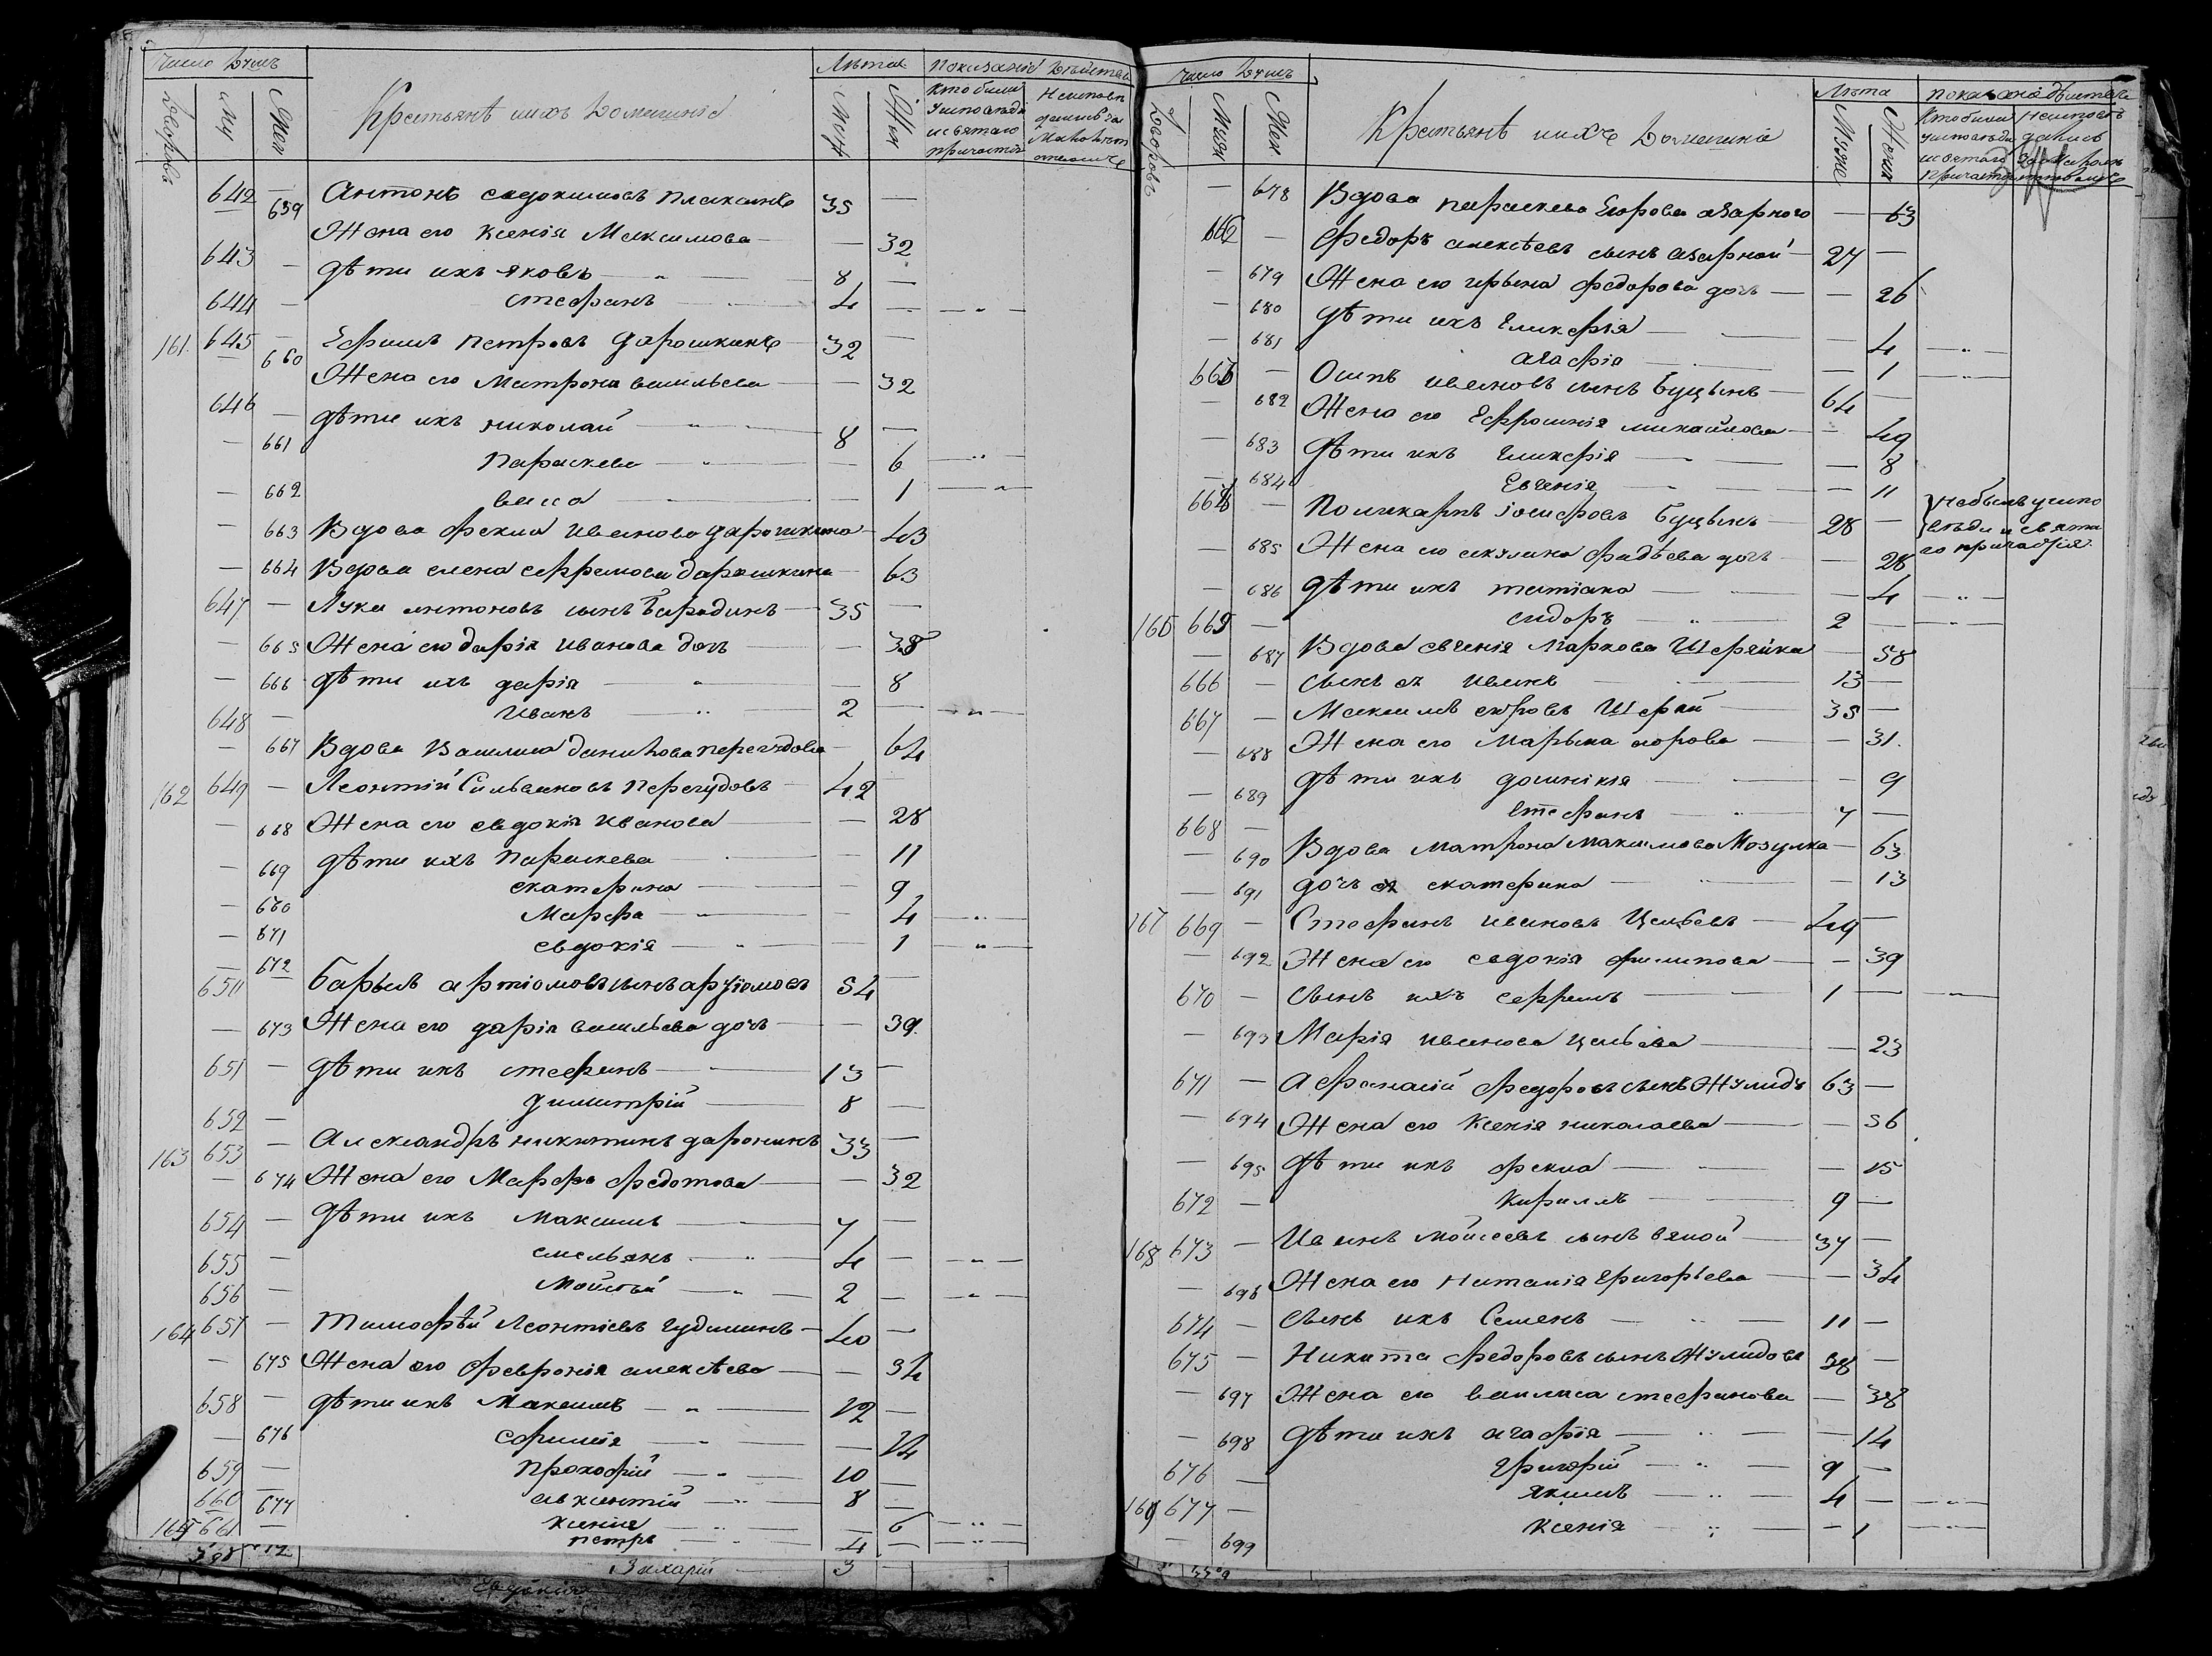 Число Душъ
Лѣта
Показаніе Дѣйства
Дворовъ
Муж
Жен
Крестьянѣ иихъ Домашніе
Муж
Жен
642 — Антонъ евдокимовъ Плаксинъ 35 —
659 Жена его Ксенія Максимова — 32
643 — дѣти ихъ яковъ 8 —
644 — стефанъ 4 — —"—
161. 645 — Ефимъ Петровъ Дарошкинъ 32 —
660 Жена его Матрона васильева — 32
646 — дѣти ихъ николай 8 —
— 661 Параскева — 6 —"—
— 662 васса — 1 —"—
— 663 Вдова фекла Иванова дарошкина — 43
— 664 Вдова елена ефремова дарошкина — 63
647 — Лука антоновъ сынъ Барадинъ 35 —
— 665 Жена его дарія Иванова дочь — 38
— 666 дѣти ихъ дарія — 8
648 — Иванъ 2 — —"—
— 667 Вдова Василиса данилова перегудова — 64
162 649 — Леонтій Сильвановъ Перегудовъ 42
— 668 Жена его евдокія Иванова — 28
— 669 дѣти ихъ Параскева — 11
— 670 екатерина — 9
— 671 Марфа — 4 —"—
— 672 евдокія — 1 —"—
650 артіомовъ сынъ артіомовъ 54 —
— 673 Жена его дарія васильева дочь — 39.
651 — дѣти ихъ стефанъ 13 —
652 — димитрій 8 —
163 653 — Александръ никитинъ даронинъ 33 —
— 674 Жена его Марфа федотова — 32
654 — дѣти ихъ Максимъ 7 —
655 — емельянъ 4 — —"—
656 — Мойсѣй 2 — —"—
164 657 — Тимофѣй Леонтіевъ гудилинъ 40 —
— 675 Жена его февронія алексѣева — 34
658 — дѣти ихъ Максимъ 12 —
— 676 — 14
659 — Прокофій 10 —
660 авксентій 8 —
677 ксенія — 6 —"—
165 661 — петръ 4 — —"—
Захарій 3
Евдокія
Число Душъ
Лѣта
Показаніе дѣйства
Дворовъ
Муж
Жен.
Крестьянѣ иихъ Домашніе
Муже
Женс
— 678 Вдова параскева Егорова азарного — 63
662 — Федоръ алексѣевъ сынъ азарной 27 —
— 679 Жена его ирына федорова дочь — 26
— 680 дѣти ихъ Гликерія — 4 —"—
— 681 агафія — 1 —"—
663 — Осипъ ивановъ сынъ Буцынъ 64 —
— 682 Жена его Ефросинія михайлова — 49
— 683 дѣти ихъ Гликерія — 8
— 684 Евгенія — 11
664 — Поликарпъ іосифовъ Буцынъ 28 — небылъ уиспо
вѣди и свята
го причастія.
— 685 Жена его акулина фадѣева дочь — 28
— 686 дѣти ихъ татіана — 4 —"—
166 665 — сидоръ 2 — —"—
— 687 Вдова евгенія Маркова — 58
666 — сынъ ея иванъ 13 —
667 — Максимъ егоровъ 35 —
— 688 Жена его Марьяна егорова — 31.
— 689 дѣти ихъ домникія — 9
668 — Стефанъ 7 —
— 690 Вдова Матрона Максимова Мозулка — 63
— 691 дочь ея екатерина — 13
167 669 — Стефанъ ивановъ Целбевъ 49 —
— 692 Жена его евдокія филипова — 39
670 — сынъ ихъ ефремъ 1 — —"—
— 693 Марія иванова целбева — 23
671 — Афанасій федоровъ сынъ Жулидъ 63 —
— 694 Жена его Ксенія николаева — 56
— 695 дѣти ихъ фекла — 15
672 — кириллъ 9 —
168 673 — Иванъ мойсеевъ сынъ вяной 37 —
— 696 Жена его Наталія Григорьева — 34
674 — сынъ ихъ Семенъ 11 —
675 — Никита федоровъ сынъ Жулидовъ 38 —
— 697 Жена его василиса стефанова — 38
— 698 дѣти ихъ агафія — 14
676 — григорій 9 —
169 677 — якимъ 4 — —"—
— 699 ксенія — 1 —"—